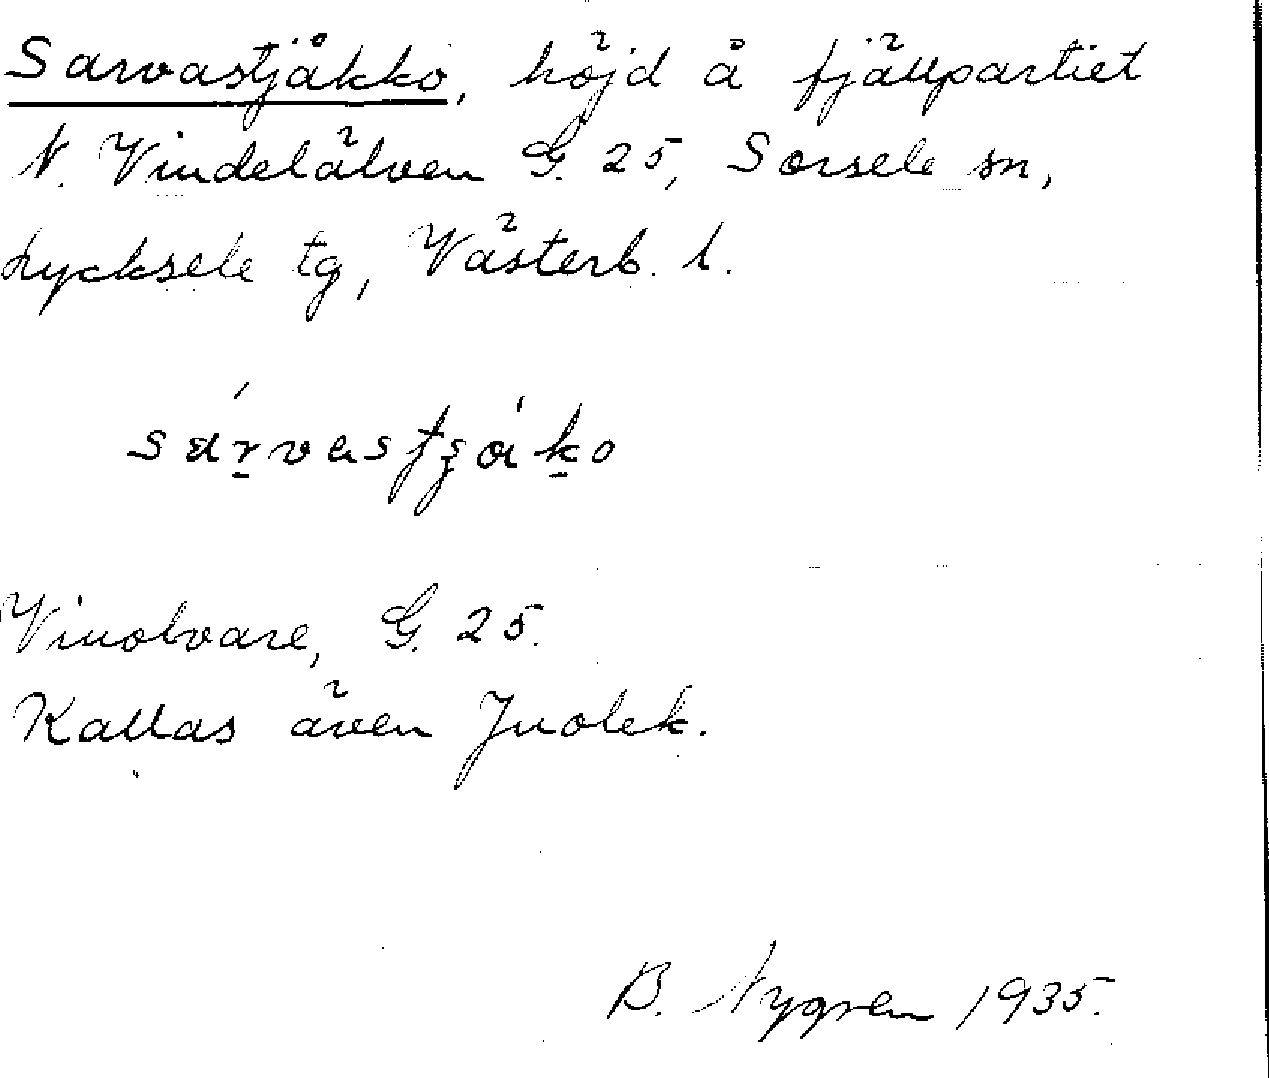 Sarvastjåkko, höjd å fjällpartiet
N. Vindelälven G. 25, Sorsele sn,
Lycksele tg, Västerb. l.
Vinolvare, G. 25.
Kallas även Juolek.
B. Nygren 1935.